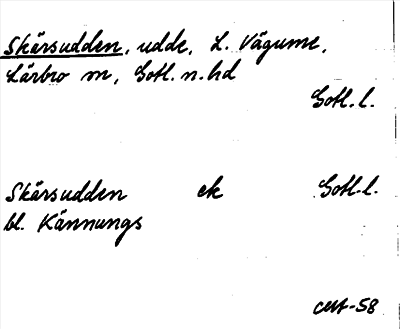 Skärsudden, udde, L. Vägume,
Lärbro sn, Gotl. n. hd
Gotl. l.
Skärsudden ek Gotl. l.
bl. Kännungs